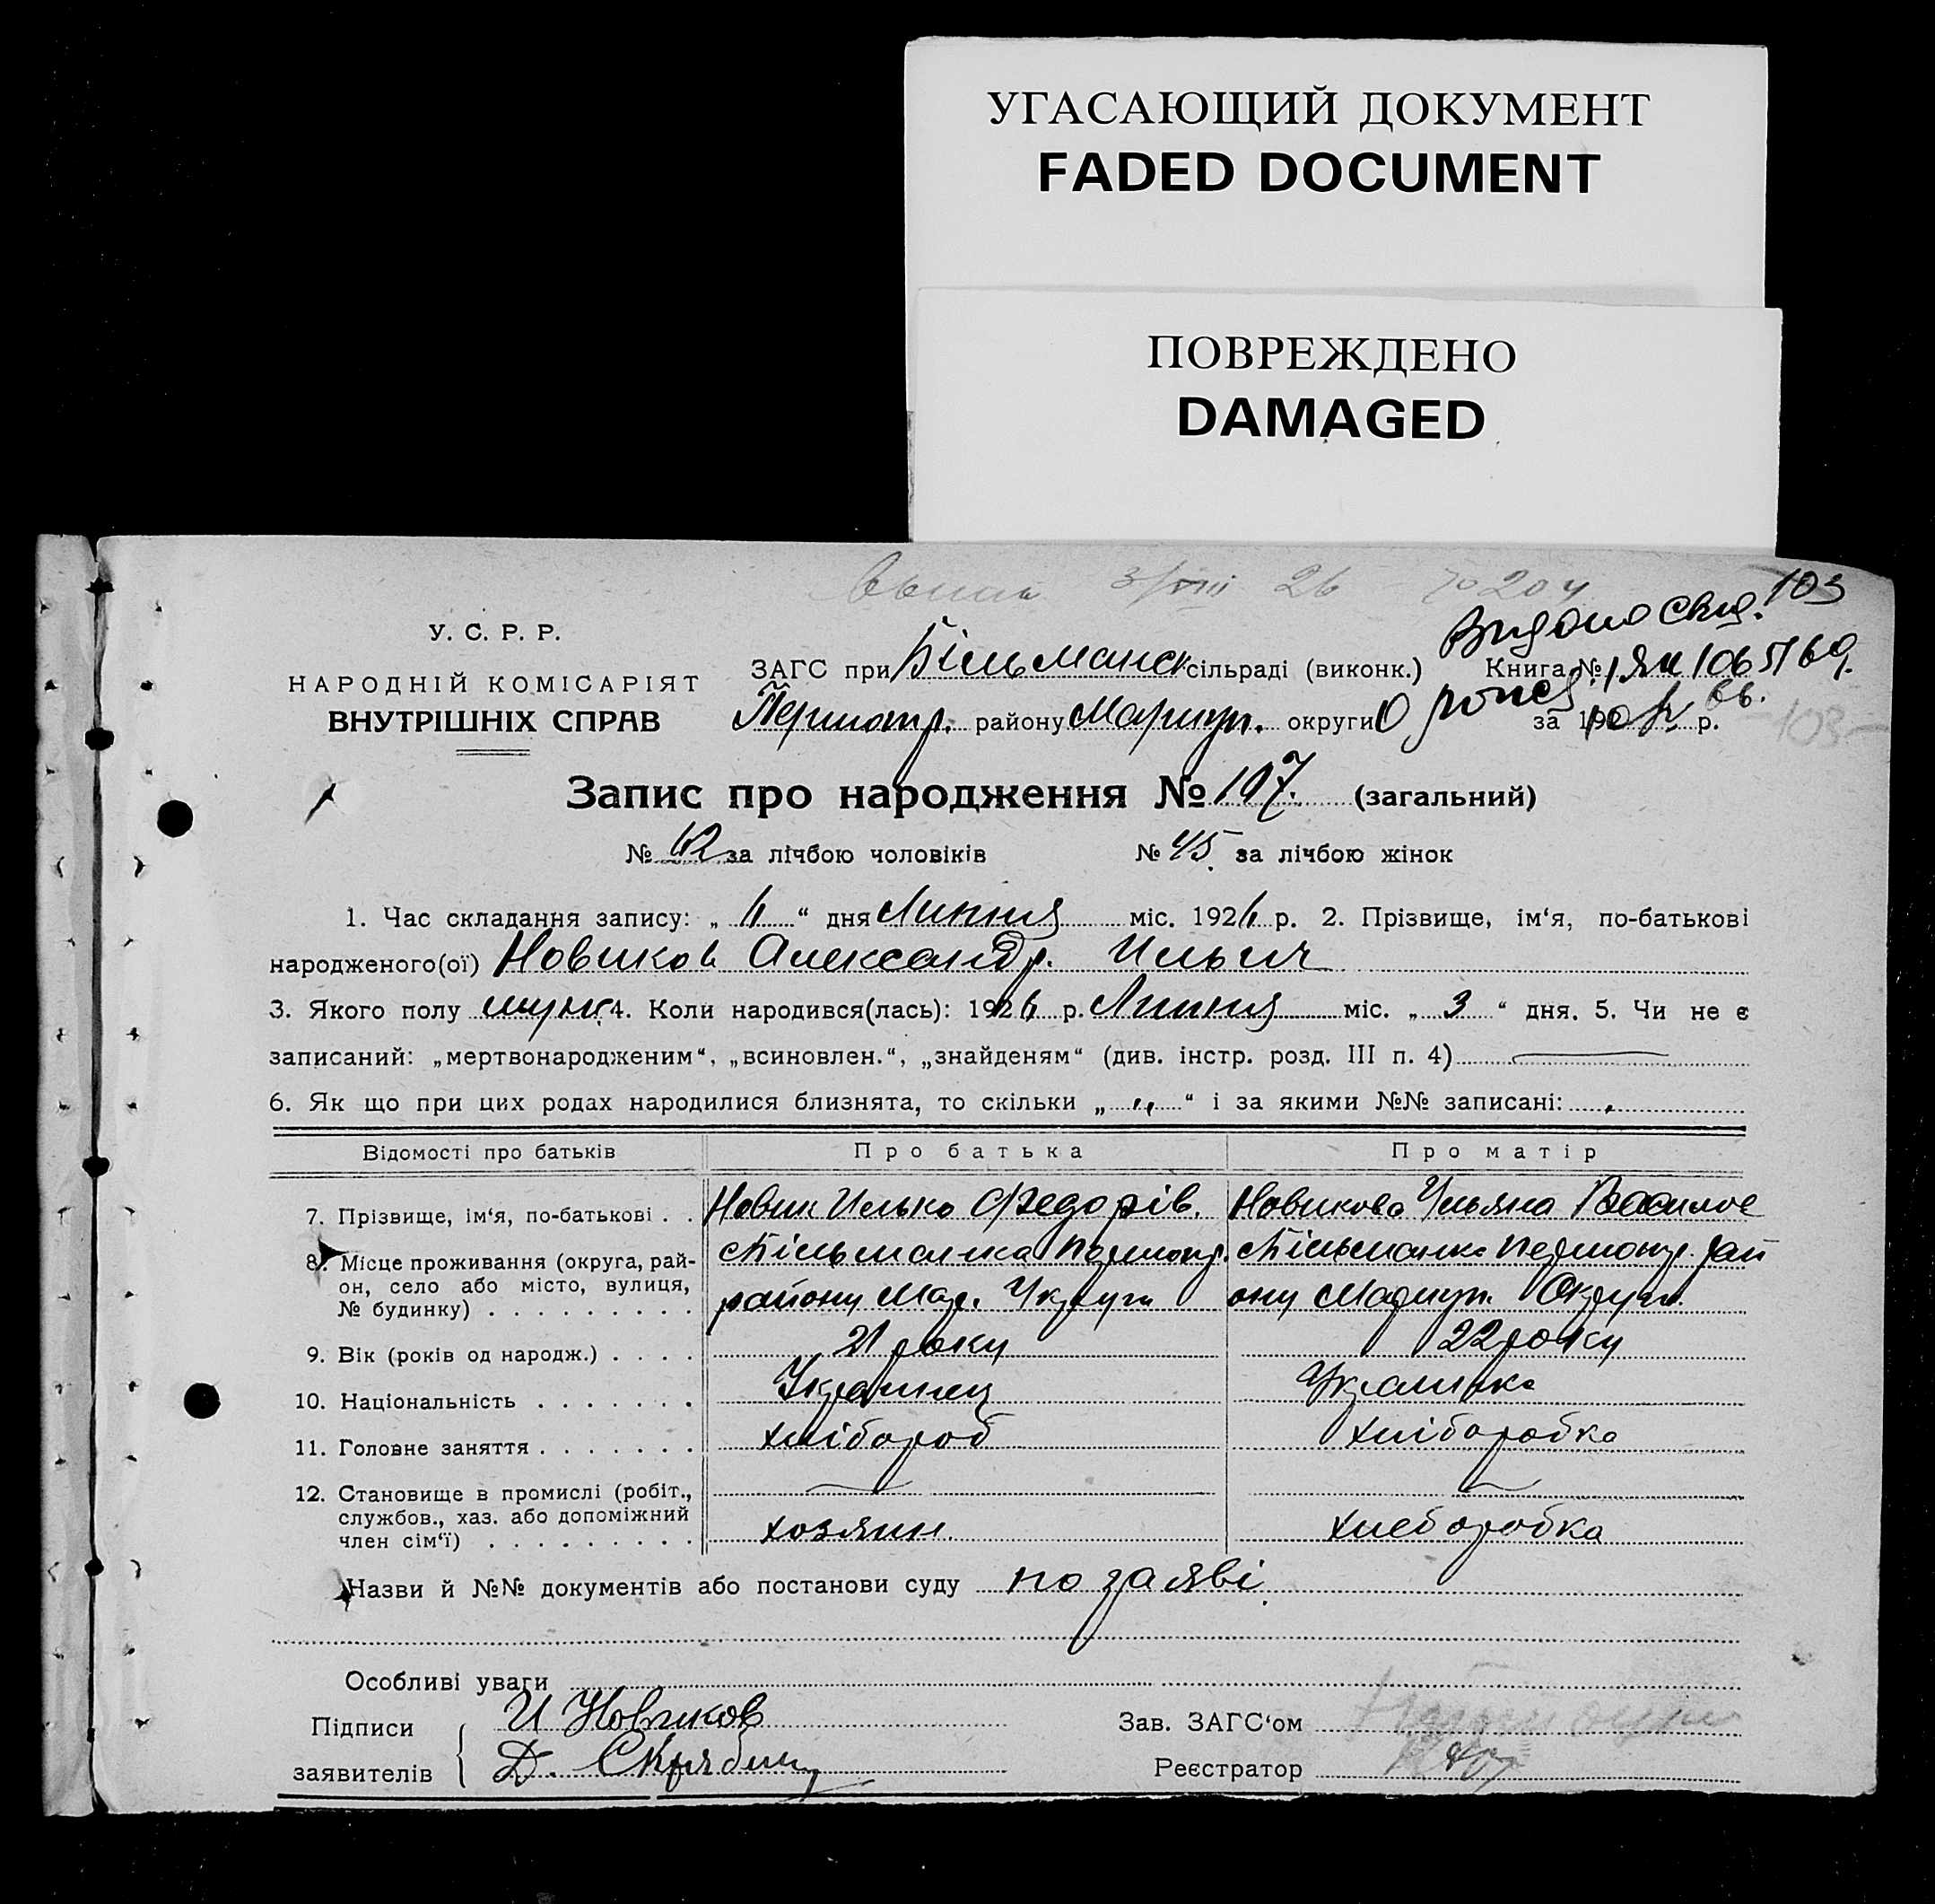 УГАСАЮЩИЙ ДОКУМЕНТ
FADED DOCUMENT
ПОВРЕЖДЕНО
DAMAGED
26 204
103
У. С. Р. Р.
НАРОДНІЙ КОМІСАРІЯТ
ВНУТРІШНІХ СПРАВ
Видано свид.
ЗАГС при Більманск сільраді (виконк.) Книга №
Першотр. району Мариуп. округи за 192 р.
103
Запис про народження № 107. (загальний)
№ 62 за лічбою чоловіків № 45 за лічбою жінок
1. Час складання запису: „ 6 “ дня Липня міс. 1926 р. 2. Прізвище, ім‘я, по-батькові
народженого(ої) Новиков Александр. Ильич
3. Якого полу муж. 4. Коли народився(лась): 1926 р. Липня міс. „ 3 “ дня. 5. Чи не є
записаний: „мертвонародженим“, „всиновлен.“, „знайденям“ (див. інстр. розд. III п. 4)
6. Як що при цих родах народилися близнята, то скільки „ “ і за якими №№ записані:
Відомості про батьків Про батька Про матір
7. Прізвище, ім‘я, по-батькові . . Новик Илько Федорів. Новикова Ульяна Василов
8. Місце проживання (округа, рай- Більманка Першотр. Більманка Першотр. рай
он, село або місто, вулиця,
№ будинку) . . . . . . . . . району Мар. Укруги ону Мариуп. Округи.
9. Вік (років од народж.) . . . . 21 року 22 року
10. Національність . . . . . . . Украинец Украинка
11. Головне заняття . . . . . . . хлібороб хліборобка
12. Становище в промислі (робіт.,
службов., хаз. або допоміжний
член сім‘ї) . . . . . . . . . хозяин. хлеборобка
Назви й №№ документів або постанови суду по заяві.
Особливі уваги
Підписи И Новиков Зав. ЗАГС‘ом
заявителів Д. Скрябин Реєстратор